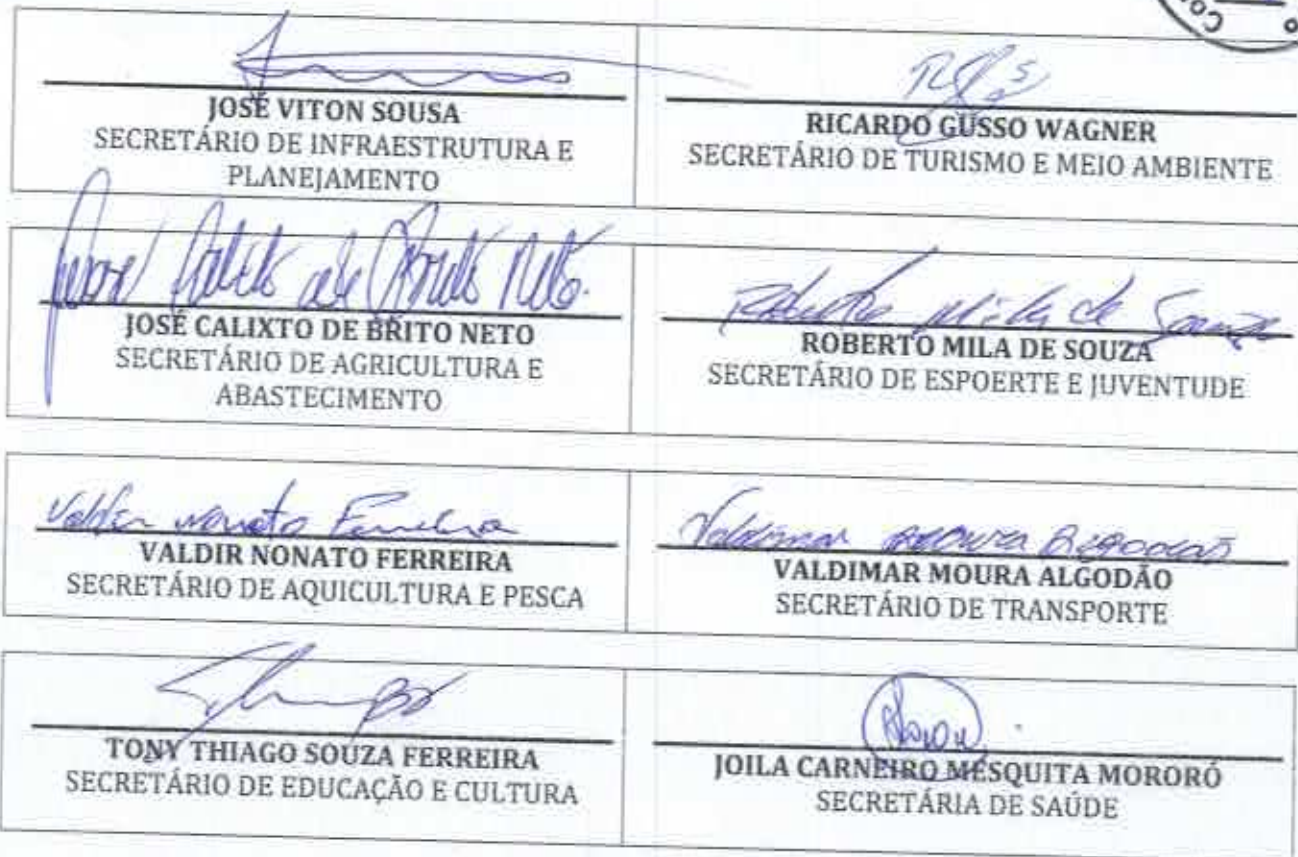 Co
JOSÉ VITON SOUSA
SECRETÁRIO DE INFRAESTRUTURA E
PLANEJAMENTO
RICARDO GUSSO WAGNER
SECRETÁRIO DE TURISMO E MEIO AMBIENTE
JOSÉ CALIXTO DE BRITO NETO
SECRETÁRIO DE AGRICULTURA E
ABASTECIMENTO
Roberto Mila de Souza
ROBERTO MILA DE SOUZA
SECRETÁRIO DE ESPOERTE E JUVENTUDE
Valdir Nonato Ferreira
VALDIR NONATO FERREIRA
SECRETÁRIO DE AQUICULTURA E PESCA
VALDIMAR MOURA ALGODÃO
SECRETÁRIO DE TRANSPORTE
TONY THIAGO SOUZA FERREIRA
SECRETÁRIO DE EDUCAÇÃO E CULTURA
JOILA CARNEIRO MESQUITA MORORÓ
SECRETÁRIA DE SAÚDE